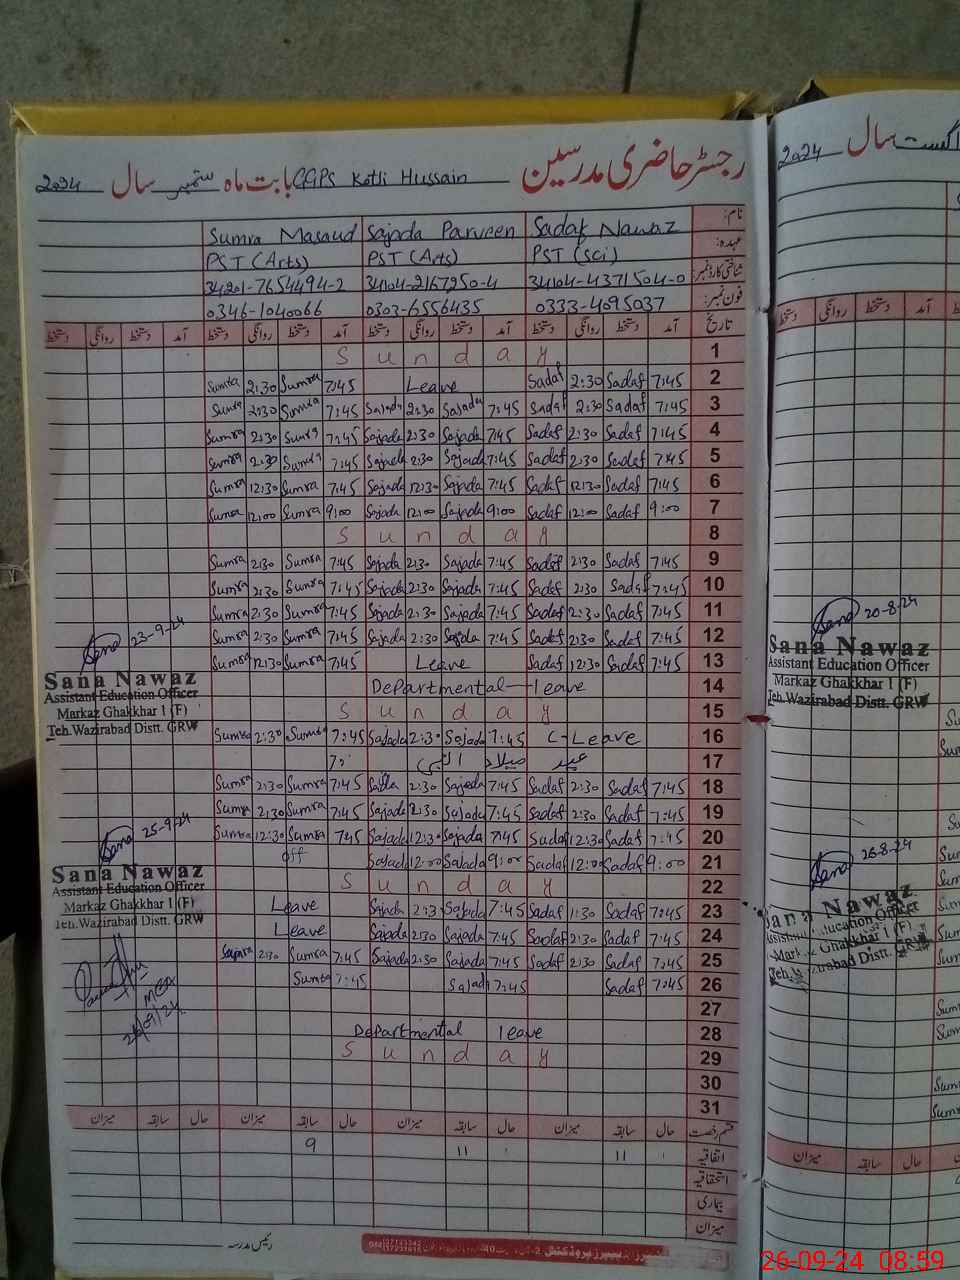 رجسٹر حاضری مدرسین GGPS Kotli Hussain بابت ماہ ستمبر سال 2024
نام:
Sadaf Nawaz Sajada Parveen Sumra Masaud
عہدہ:
PST (Sci) PST (Arts) PST (Arts)
شناختی کارڈ نمبر:
34104-4371504-0 34104-2167250-4 34201-7654494-2
فون نمبر:
0333-4095037 0303-6556435 0346-1040066
تاریخ آمد دستخط روانگی دستخط آمد دستخط روانگی دستخط آمد دستخط روانگی دستخط آمد دستخط روانگی دستخط
Sunday 1
Sumra 2:30 Sumra 7:45 Leave Sadaf 2:30 Sadaf 7:45 2
Sumra 2:30 Sumra 7:45 Sajada 2:30 Sajada 7:45 Sadaf 2:30 Sadaf 7:45 3
Sumra 2:30 Sumra 7:45 Sajada 2:30 Sajada 7:45 Sadaf 2:30 Sadaf 7:45 4
Sumra 2:30 Sumra 7:45 Sajada 2:30 Sajada 7:45 Sadaf 2:30 Sadaf 7:45 5
Sumra 12:30 Sumra 7:45 Sajada 12:30 Sajada 7:45 Sadaf 12:30 Sadaf 7:45 6
Sumra 12:00 Sumra 9:00 Sajada 12:00 Sajada 9:00 Sadaf 12:00 Sadaf 9:00 7
Sunday 8
Sumra 2:30 Sumra 7:45 Sajada 2:30 Sajada 7:45 Sadaf 2:30 Sadaf 7:45 9
Sumra 2:30 Sumra 7:45 Sajada 2:30 Sajada 7:45 Sadaf 2:30 Sadaf 7:45 10
Sumra 2:30 Sumra 7:45 Sajada 2:30 Sajada 7:45 Sadaf 2:30 Sadaf 7:45 11
Sumra 2:30 Sumra 7:45 Sajada 2:30 Sajada 7:45 Sadaf 2:30 Sadaf 7:45 12
Sumra 12:30 Sumra 7:45 Leave Sadaf 12:30 Sadaf 7:45 13
Departmental leave 14
Sunday 15
Sumra 2:30 Sumra 7:45 Sajada 2:30 Sajada 7:45 C-Leave 16
عید میلاد النبی 17
Sumra 2:30 Sumra 7:45 Sajada 2:30 Sajada 7:45 Sadaf 2:30 Sadaf 7:45 18
Sumra 2:30 Sumra 7:45 Sajada 2:30 Sajada 7:45 Sadaf 2:30 Sadaf 7:45 19
Sumra 12:30 Sumra 7:45 Sajada 12:30 Sajada 7:45 Sadaf 12:30 Sadaf 7:45 20
off Sajada 12:00 Sajada 9:00 Sadaf 12:00 Sadaf 9:00 21
Sunday 22
Leave Sajada 2:3 Sajada 7:45 Sadaf 1:30 Sadaf 7:45 23
Leave Sajada 2:30 Sajada 7:45 Sadaf 2:30 Sadaf 7:45 24
2:30 Sumra 7:45 Sajada 2:30 Sajada 7:45 Sadaf 2:30 Sadaf 7:45 25
Sumra 7:45 Sajad 7:45 Sadaf 7:45 26
27
Departmental leave 28
Sunday 29
30
31
قسم رخصت حال سابقہ میزان حال سابقہ میزان حال سابقہ میزان حال سابقہ میزان
اتفاقیہ 1 11 1 11 9
استحقاقیہ
بیماری
میزان
رئیس مدرسہ
Sana 23-9-24
Sana Nawaz
Assistant Education Officer
Markaz Ghakkhar 1 (F)
Teh. Wazirabad Distt. GRW
Sana 25-9-24
Sana Nawaz
Assistant Education Officer
Markaz Ghakkhar 1 (F)
Teh. Wazirabad Distt. GRW
MEA
26/09/24
اگست سال 2024
دستخط روانگی دستخط آمد
Sana 20-8-24
Sana Nawaz
Assistant Education Officer
Markaz Ghakkhar 1 (F)
Teh. Wazirabad Distt. GRW
Sana 26-8-24
Sana Nawaz
Assistant Education Officer
Markaz Ghakkhar 1 (F)
Teh. Wazirabad Distt. GRW
میزان سابقہ حال
26-09-24 08:59